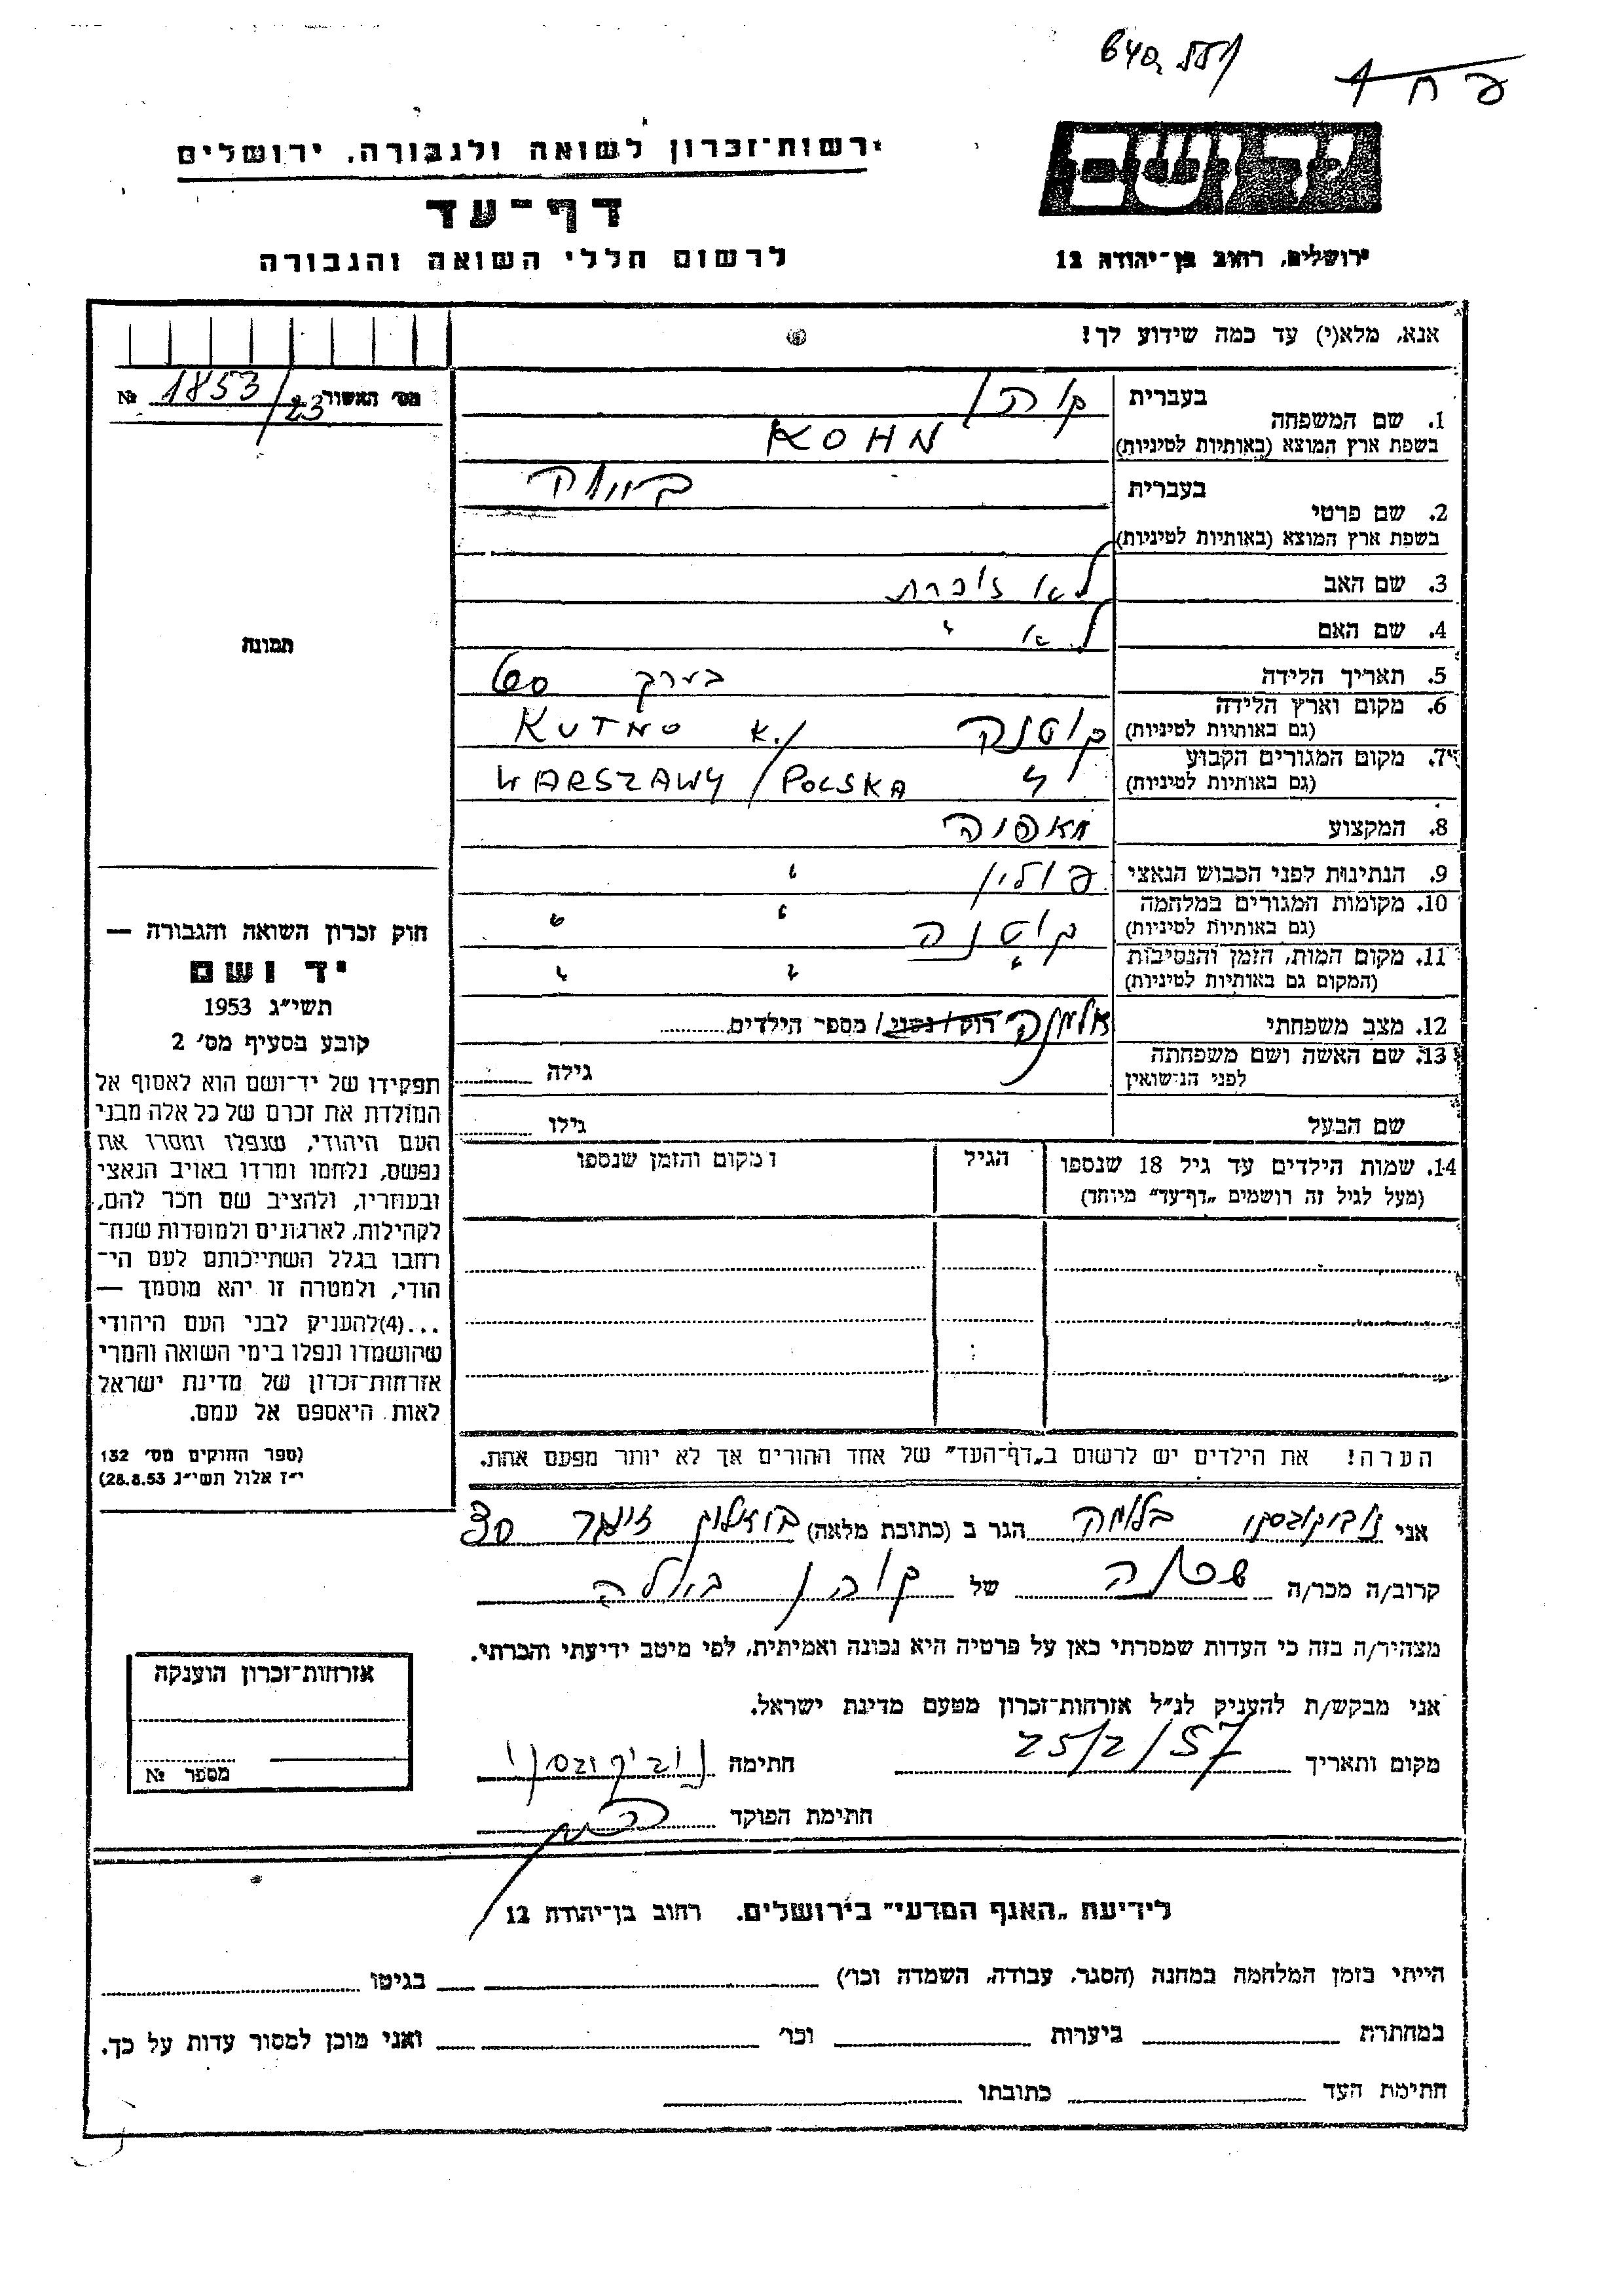 פ ח 1
רשות־זכרון לשואה ולגבורה, ירושלים
יד ושם
דף־עד
לרשום חללי השואה והגבורה
ירושלים, רחוב בן־יהודה 12
אנא, מלא(י) עד כמה שידוע לך!
מס' האשור 1853/23 №
1. שם המשפחה בעברית קוהן
בשפת ארץ המוצא (באותיות לטיניות) KOHN
2. שם פרטי בעברית
בשפת ארץ המוצא (באותיות לטיניות)
3. שם האב לא זוכרת
4. שם האם לא "
5. תאריך הלידה בערך 60
6. מקום וארץ הלידה (גם באותיות לטיניות) קוטנה KUTNO K./
7. מקום המגורים הקבוע (גם באותיות לטיניות) " WARSZAWY / POLSKA
8. המקצוע
9. הנתינות לפני הכבוש הנאצי פולין "
10. מקומות המגורים במלחמה (גם באותיות לטיניות) קוטנה " "
11. מקום המות, הזמן והנסיבות (המקום גם באותיות לטיניות) " " "
12. מצב משפחתי אלמנה רווק/נשוי/ מספר הילדים
13. שם האשה ושם משפחתה לפני הנישואין גילה
שם הבעל גילו
14. שמות הילדים עד גיל 18 שנספו הגיל מקום והזמן שנספו
(מעל לגיל זה רושמים „דף־עד" מיוחד)
תמונה
חוק זכרון השואה והגבורה —
יד ושם
תשי"ג 1953
קובע בסעיף מס' 2
תפקידו של יד־ושם הוא לאסוף אל
המולדת את זכרם של כל אלה מבני
העם היהודי, שנפלו ומסרו את
נפשם, נלחמו ומרדו באויב הנאצי
ובעוזריו, ולהציב שם וזכר להם,
לקהילות, לארגונים ולמוסדות שנח־
רבו בגלל השתייכותם לעם הי־
הודי, ולמטרה זו יהא מוסמך —
...(4) להעניק לבני העם היהודי
שהושמדו ונפלו בימי השואה והמרי
אזרחות־זכרון של מדינת ישראל
לאות היאספם אל עמם.
(ספר החוקים מס' 132
י"ז אלול תשי"ג 28.8.53)
הערה! את הילדים יש לרשום ב„דף־העד" של אחד ההורים אך לא יותר מפעם אחת.
אני בלומה הגר ב (כתובת מלאה)
קרוב/ה מכר/ה שכנה של קוהן
מצהיר/ה בזה כי העדות שמסרתי כאן על פרטיה היא נכונה ואמיתית, לפי מיטב ידיעתי והכרתי.
אני מבקש/ת להעניק לנ"ל אזרחות־זכרון מטעם מדינת ישראל.
מקום ותאריך 25/2/57 חתימה
חתימת הפוקד
אזרחות־זכרון הוענקה
מספר №
לידיעת „האגף המדעי" בירושלים. רחוב בן־יהודה 12
הייתי בזמן המלחמה במחנה (הסגר, עבודה, השמדה וכו') בגיטו
במחתרת ביערות וכו' ואני מוכן למסור עדות על כך.
חתימת העד כתובתו